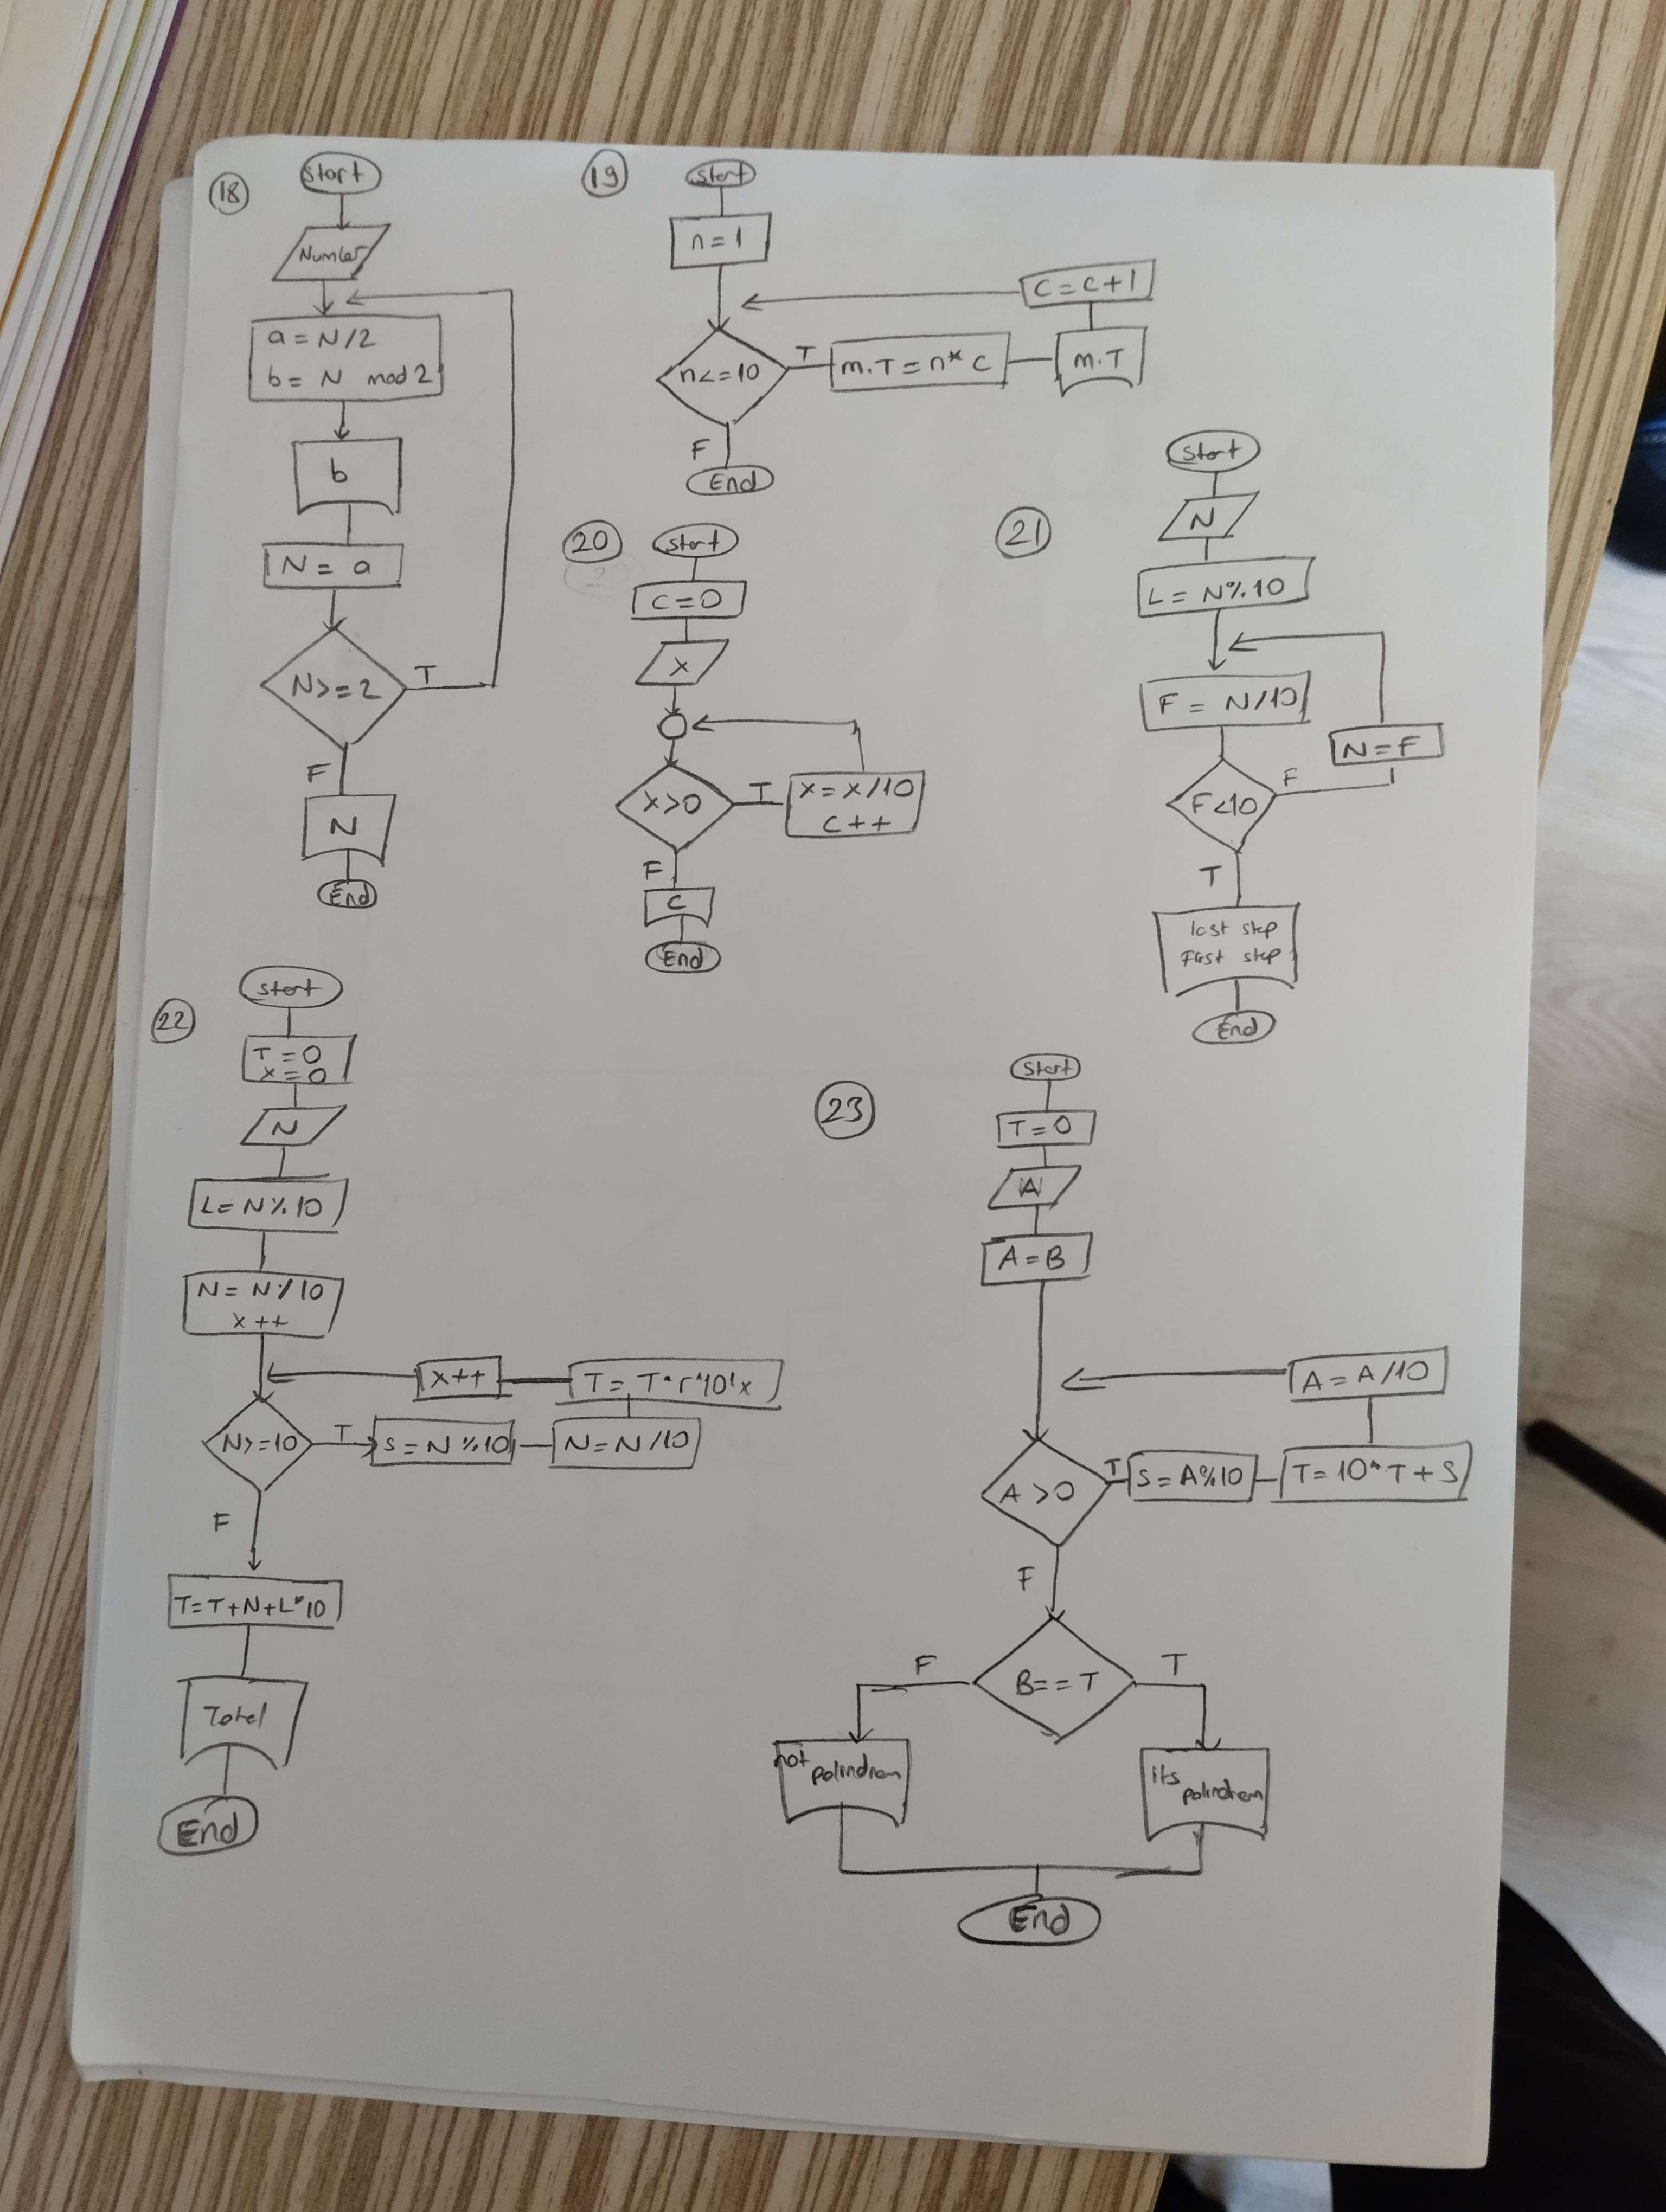 18
Start
Number
a = N/2
b = N mod 2
b
N = a
N>=2
T
F
N
End
19
Start
n=1
n<=10
T
m.T = n* c
m.T
c = c+1
F
End
20
Start
C=0
X
X>0
T
X = X/10
C++
F
C
End
21
Start
N
L = N%10
F = N/10
N = F
F<10
F
T
last step
First step
End
22
Start
T=0
X=0
N
L = N%10
N = N/10
X++
N>=10
T
S = N%10
N = N/10
X++
F
T=T+N+L*10
Total
End
23
Start
T=0
A
A = B
A>0
T
S = A%10
T = 10* T + S
A = A/10
F
B==T
F
T
not
polindrom
its
polindrom
End